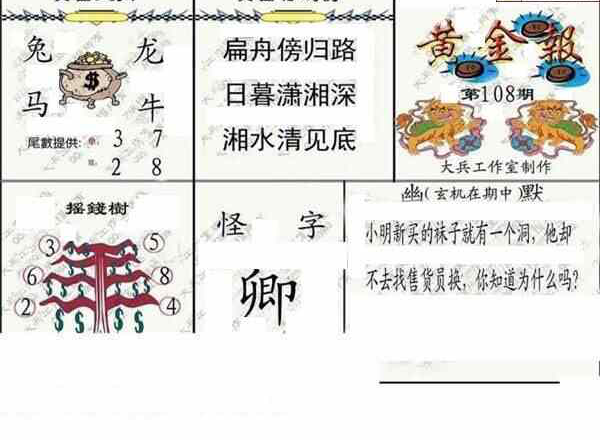 兔 龙
$
马 牛
尾數提供: 3 7
2 8
扁舟傍归路
日暮潇湘深
湘水清见底
黄金報
第108期
大兵工作室制作
摇錢樹
3 5
6 8
2 4
$ $ $ $ $ $
$ $
怪 字
卿
幽(玄机在期中)默
小明新买的袜子就有一个洞，他却
不去找售货员换，你知道为什么吗?